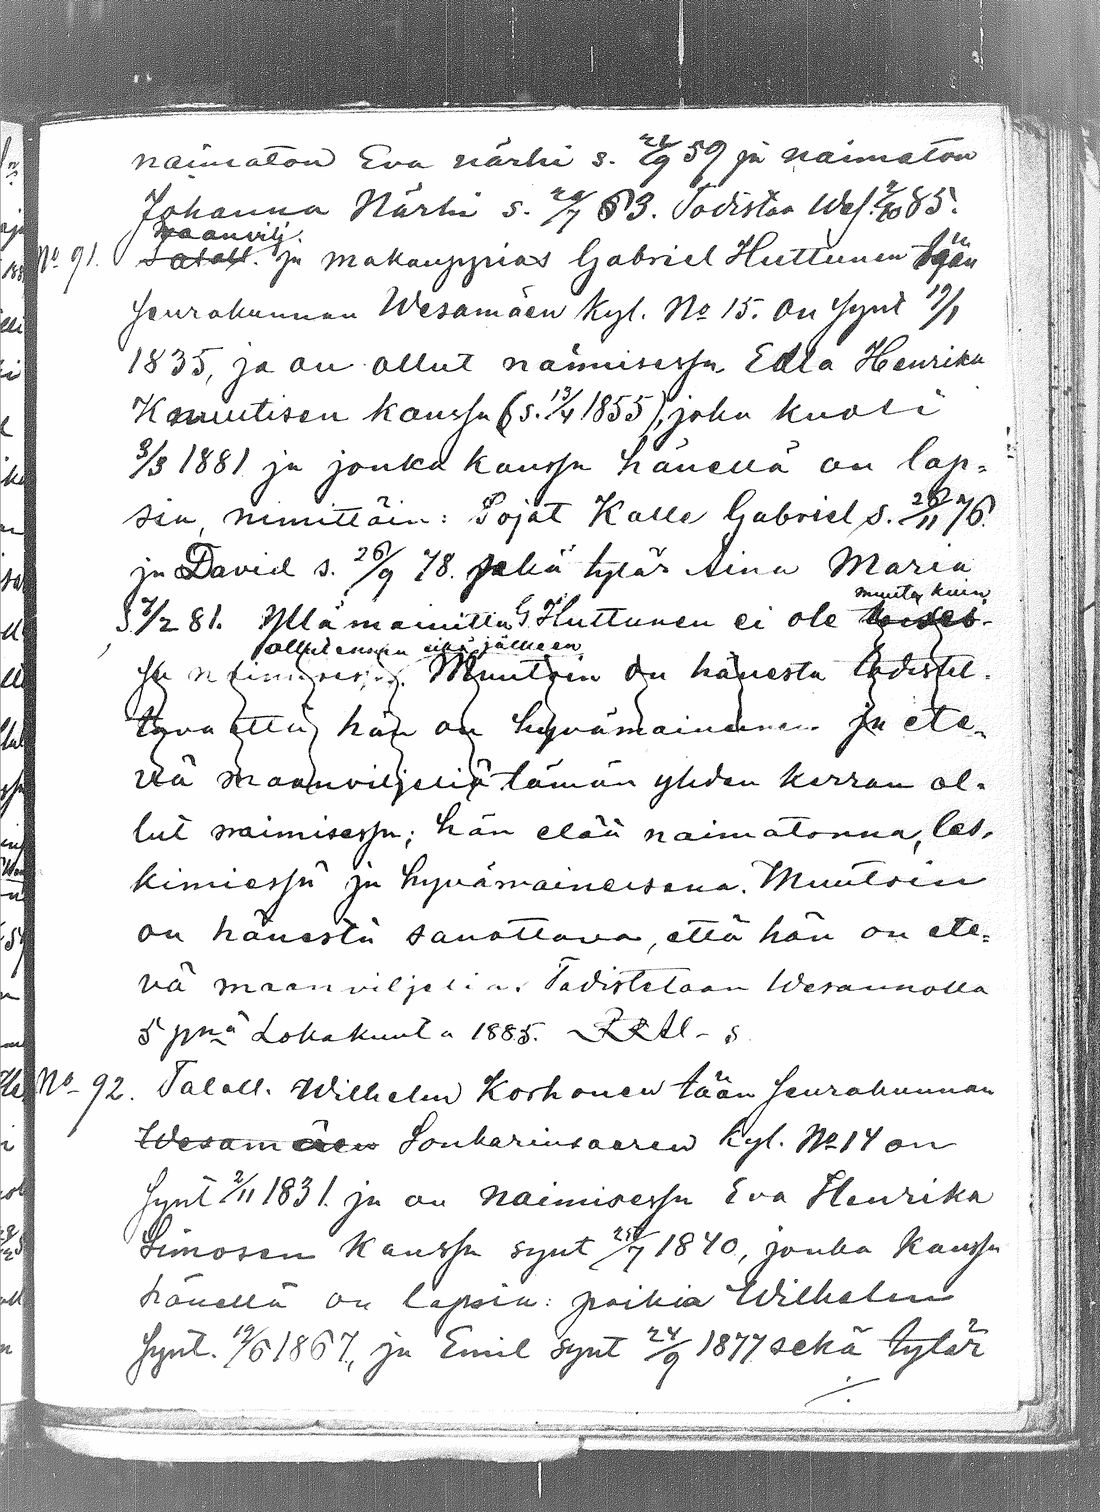 naimaton Eva Närhi s. 26/9 59 ja naimaton
Johanna Närhi s. 24/7 63. Todistaa Wes. 2/10 85.
maanvilj.
No 91. Talall. ja makauppias Gabriel Huttunen tään
seurakunnan Wesamäen kyl. No 15. on synt 19/1
1835, ja on ollut naimisessa Edla Henrika
Knuutisen kanssa (s. 13/4 1855), joka kuoli
3/3 1881 ja jonka kanssa hänellä on lap-
sia, nimittäin: Pojat Kalle Gabriel s. 22/11 76.
ja David s. 26/9 78. sekä tytär Aina Maria
s. 7/2 81. Yllämainittu G. Huttunen ei ole
muuta kuin
ollut ennen eikä jälkeen
sa naimisessa. Muutoin on hänestä todistet-
tava että hän on hyvämaineinen ja ete-
vä maanviljeliä tämän yhden kerran ol-
lut naimisessa; hän elää naimatonna, les-
kimiessä ja hyvämaineisena. Muutoin
on hänestä sanottava, että hän on ete-
vä maanviljeliä. Todistetaan Wesannolla
5 pnä Lokakuuta 1885.
No 92. Talall. Wilhelm Korhonen tään seurakunnan
Wesamäen Sonkarinsaaren kyl. No 14 on
synt 2/11 1831. ja on naimisessa Eva Henrika
Simosen kanssa synt 25/7 1840, jonka kanssa
hänellä on lapsia: poikia Wilhelm
synt. 19/6 1867., ja Emil synt 24/9 1877 sekä tytär
./.